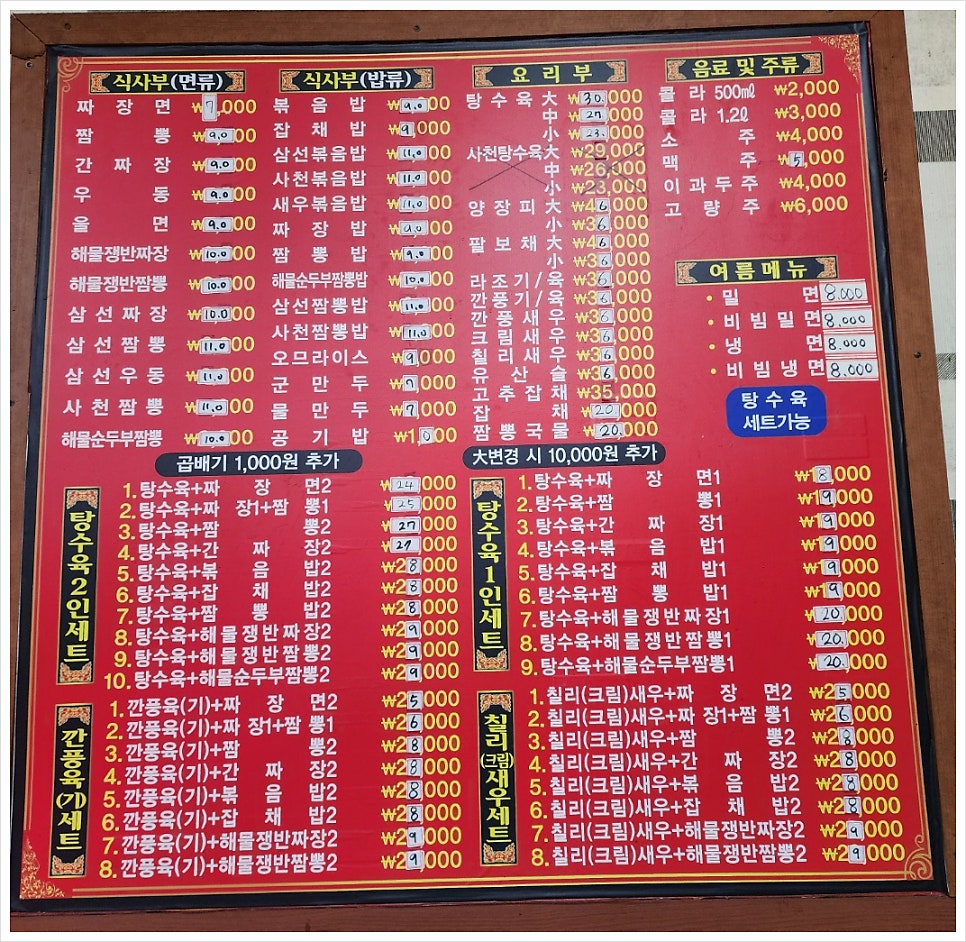 식사부(면류)
짜장면 ₩7,000
짬뽕 ₩9,000
간짜장 ₩9,000
우동 ₩9,000
울면 ₩9,000
해물쟁반짜장 ₩10,000
해물쟁반짬뽕 ₩10,000
삼선짜장 ₩10,000
삼선짬뽕 ₩11,000
삼선우동 ₩11,000
사천짬뽕 ₩11,000
해물순두부짬뽕 ₩10,000
식사부(밥류)
볶음밥 ₩9,000
잡채밥 ₩9,000
삼선볶음밥 ₩11,000
사천볶음밥 ₩11,000
새우볶음밥 ₩11,000
짜장밥 ₩9,000
짬뽕밥 ₩9,000
해물순두부짬뽕밥 ₩10,000
삼선짬뽕밥 ₩11,000
사천짬뽕밥 ₩11,000
오므라이스 ₩9,000
군만두 ₩7,000
물만두 ₩7,000
공기밥 ₩1,000
곱배기 1,000원 추가
요리부
탕수육大 ₩30,000
中 ₩27,000
小 ₩23,000
사천탕수육大 ₩29,000
中 ₩26,000
小 ₩23,000
양장피大 ₩46,000
小 ₩36,000
팔보채大 ₩46,000
小 ₩36,000
라조기/육 ₩36,000
깐풍기/육 ₩36,000
깐풍새우 ₩36,000
크림새우 ₩36,000
칠리새우 ₩36,000
유산슬 ₩36,000
고추잡채 ₩35,000
잡채 ₩20,000
짬뽕국물 ₩20,000
大변경 시 10,000원 추가
음료 및 주류
콜라 500㎖ ₩2,000
콜라 1.2ℓ ₩3,000
소주 ₩4,000
맥주 ₩5,000
이과두주 ₩4,000
고량주 ₩6,000
여름메뉴
• 밀면 8.000
• 비빔밀면 8.000
• 냉면 8.000
• 비빔냉면 8.000
탕수육
세트가능
탕수육2인세트
1. 탕수육+짜장면2 ₩24,000
2. 탕수육+짜장1+짬뽕1 ₩25,000
3. 탕수육+짬뽕2 ₩27,000
4. 탕수육+간짜장2 ₩27,000
5. 탕수육+볶음밥2 ₩28,000
6. 탕수육+잡채밥2 ₩28,000
7. 탕수육+짬뽕밥2 ₩28,000
8. 탕수육+해물쟁반짜장2 ₩29,000
9. 탕수육+해물쟁반짬뽕2 ₩29,000
10. 탕수육+해물순두부짬뽕2 ₩29,000
탕수육1인세트
1. 탕수육+짜장면1 ₩18,000
2. 탕수육+짬뽕1 ₩19,000
3. 탕수육+간짜장1 ₩19,000
4. 탕수육+볶음밥1 ₩19,000
5. 탕수육+잡채밥1 ₩19,000
6. 탕수육+짬뽕밥1 ₩19,000
7. 탕수육+해물쟁반짜장1 ₩20,000
8. 탕수육+해물쟁반짬뽕1 ₩20,000
9. 탕수육+해물순두부짬뽕1 ₩20,000
깐풍육(기)세트
1. 깐풍육(기)+짜장면2 ₩25,000
2. 깐풍육(기)+짜장1+짬뽕1 ₩26,000
3. 깐풍육(기)+짬뽕2 ₩28,000
4. 깐풍육(기)+간짜장2 ₩28,000
5. 깐풍육(기)+볶음밥2 ₩28,000
6. 깐풍육(기)+잡채밥2 ₩28,000
7. 깐풍육(기)+해물쟁반짜장2 ₩29,000
8. 깐풍육(기)+해물쟁반짬뽕2 ₩29,000
칠리(크림)새우세트
1. 칠리(크림)새우+짜장면2 ₩25,000
2. 칠리(크림)새우+짜장1+짬뽕1 ₩26,000
3. 칠리(크림)새우+짬뽕2 ₩28,000
4. 칠리(크림)새우+간짜장2 ₩28,000
5. 칠리(크림)새우+볶음밥2 ₩28,000
6. 칠리(크림)새우+잡채밥2 ₩28,000
7. 칠리(크림)새우+해물쟁반짜장2 ₩29,000
8. 칠리(크림)새우+해물쟁반짬뽕2 ₩29,000